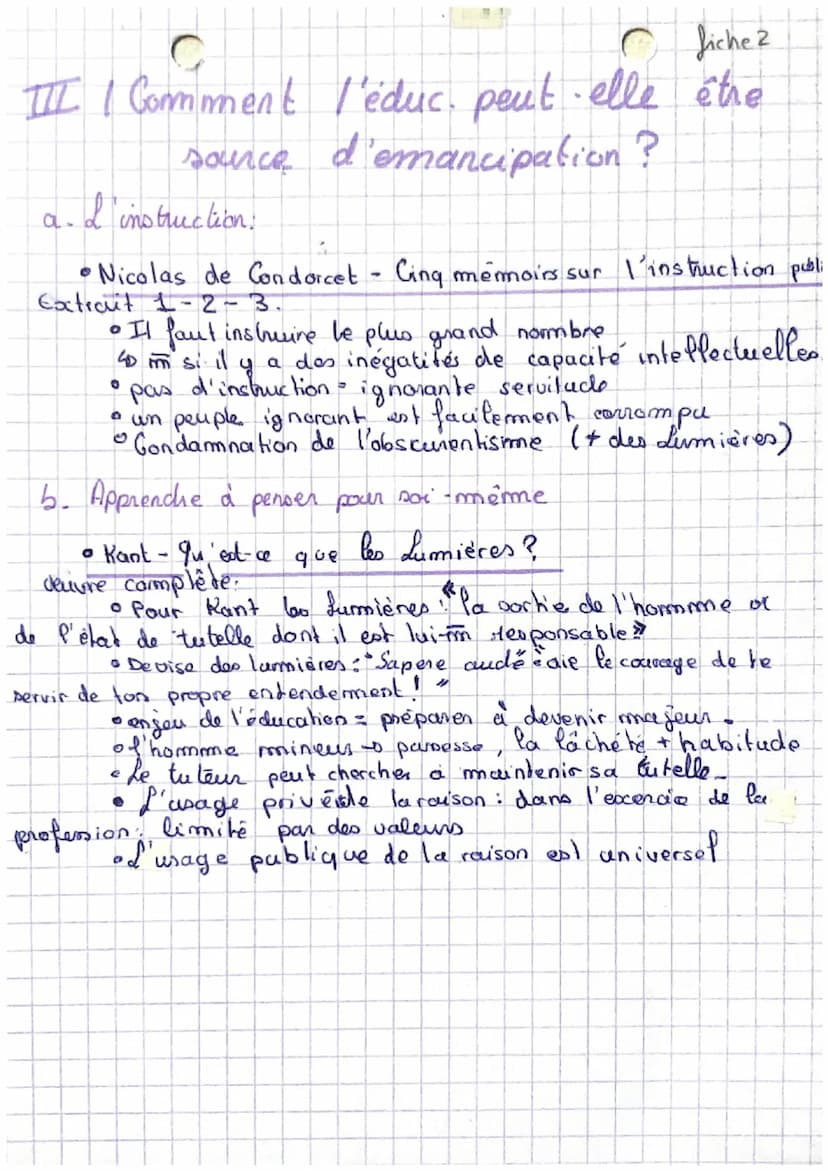 fiche 2
III / Comment l'éduc. peut-elle être
source d'emancipation ?
a. L'instruction:
• Nicolas de Condorcet - Cinq mémoirs sur l'instruction publi
Extrait 1-2-3.
• Il faut instruire le plus grand nombre
↳ m̄ si il y a des inégalités de capacité intellectuelles
• pas d'instruction = ignorante servitude
• un peuple ignorant est facilement corrompu
• Condamnation de l'obscurentisme (≠ des Lumières)
b. Apprendre à penser pour soi-même
• Kant - Qu'est-ce que les Lumières ?
œuvre complète:
• Pour Kant les Lumières : "la sortie de l'homme
de l'état de tutelle dont il est lui-m̄ responsable"
• Devise des lumières : "Sapere audé : aie le courage de te
servir de ton propre entendement ! "
• enjeu de l'éducation = préparer à devenir majeur.
• l'homme mineur → paresse, la lâcheté + habitude
• Le tuteur peut chercher à maintenir sa tutelle
• L'usage privé de la raison : dans l'excercice de la
profession: limité par des valeurs
• L'usage publique de la raison est universel